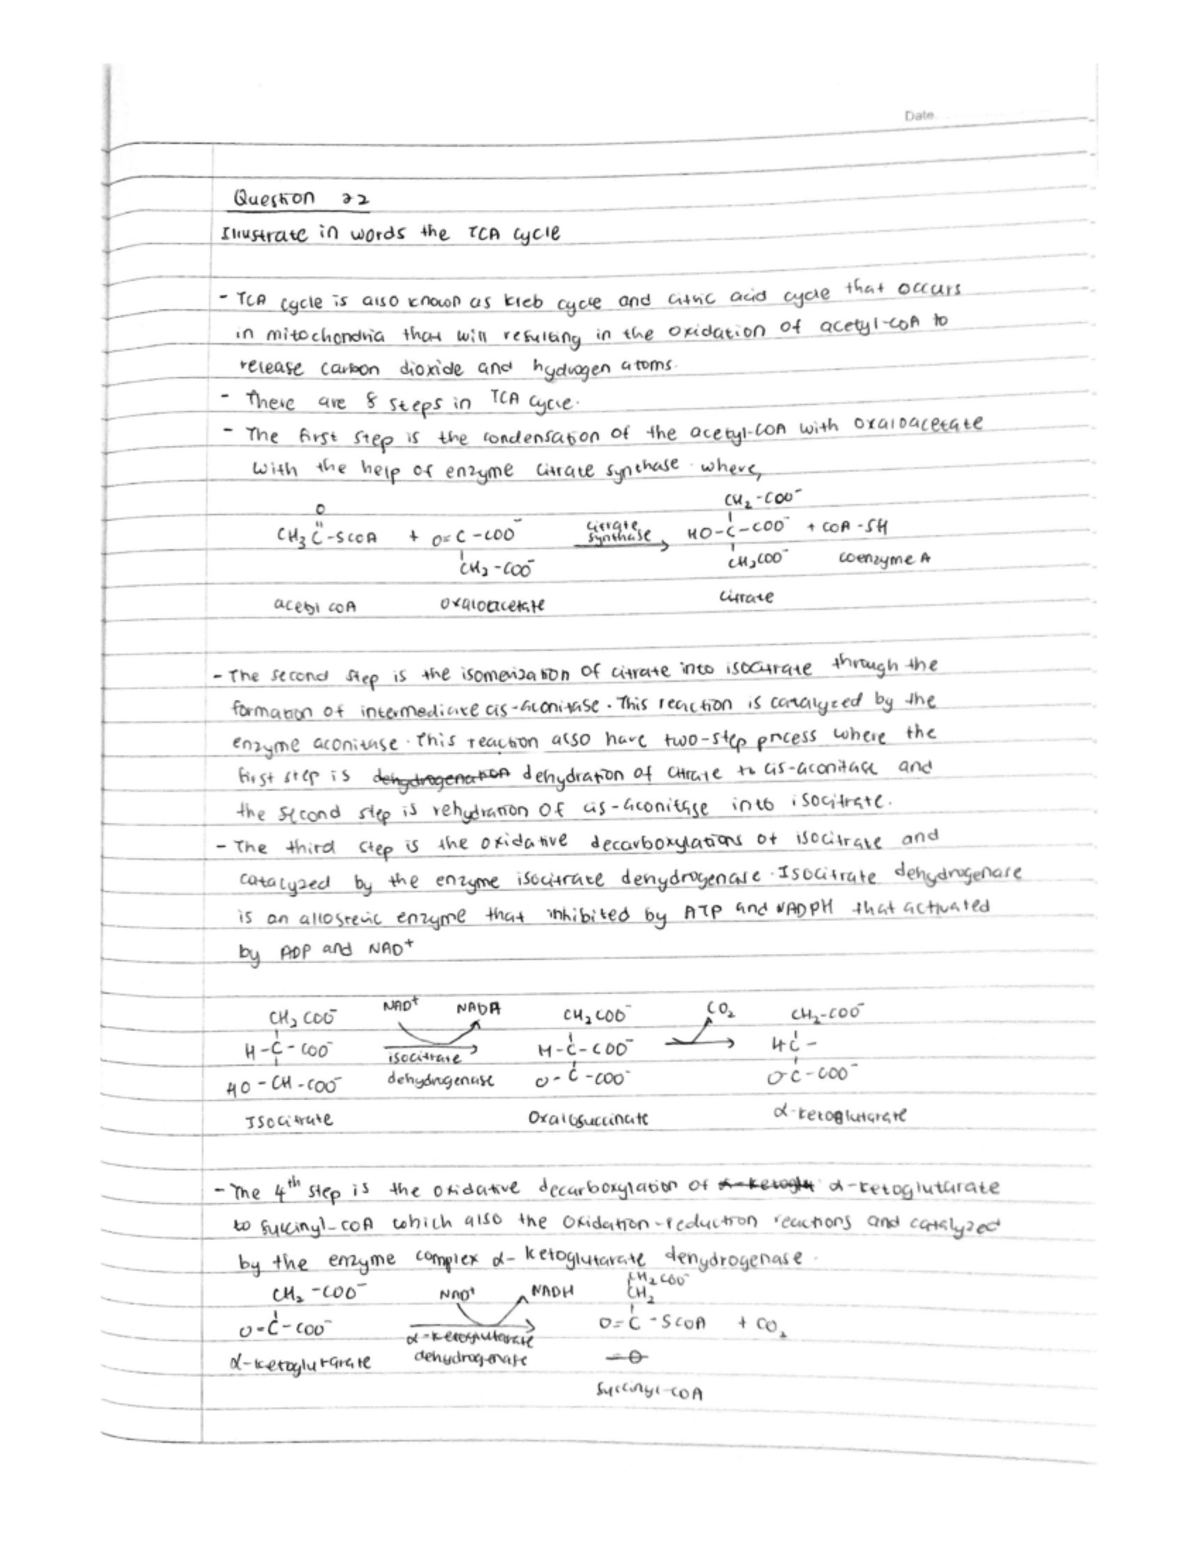 Date
Question 22
Illustrate in words the TCA cycle
- TCA cycle is also known as kreb cycle and citric acid cycle that occurs
in mitochondria that will resulting in the oxidation of acetyl-coA to
release carbon dioxide and hydrogen atoms.
- There are 8 steps in TCA cycle.
- The first step is the condensation of the acetyl-coA with oxaloacetate
with the help of enzyme citrate synthase. where,
CH2-COO⁻
O
CH3 C-SCOA + O=C-COO⁻ citrate synthase HO-C-COO⁻ + COA-SH
CH2-COO⁻ CH2COO⁻ coenzyme A
acetyl coA oxaloacetate citrate
- The second step is the isomerization of citrate into isocitrate through the
formation of intermediate cis-aconitase. This reaction is catalyzed by the
enzyme aconitase. This reaction also have two-step process where the
first step is dehydrogenation dehydration of citrate to cis-aconitase and
the second step is rehydration of cis-aconitase into isocitrate.
- The third step is the oxidative decarboxylations of isocitrate and
catalyzed by the enzyme isocitrate dehydrogenase. Isocitrate dehydrogenase
is an allosteric enzyme that inhibited by ATP and NADPH that activated
by ADP and NAD⁺
CH2COO⁻ NAD⁺ NADH CH2COO⁻ CO2 CH2-COO⁻
H-C-COO⁻ isocitrate H-C-COO⁻ HC-
HO-CH-COO⁻ dehydrogenase O-C-COO⁻ OC-COO⁻
Isocitrate Oxalosuccinate α-ketoglutarate
- The 4th step is the oxidative decarboxylation of α-ketoglu α-ketoglutarate
to succinyl-coA which also the oxidation-reduction reactions and catalyzed
by the enzyme complex α-ketoglutarate dehydrogenase.
CH2COO⁻
CH2-COO⁻ NAD⁺ NADH CH2
O=C-COO⁻ α-ketoglutarate O=C-SCOA + CO2
α-ketoglutarate dehydrogenase
succinyl-coA